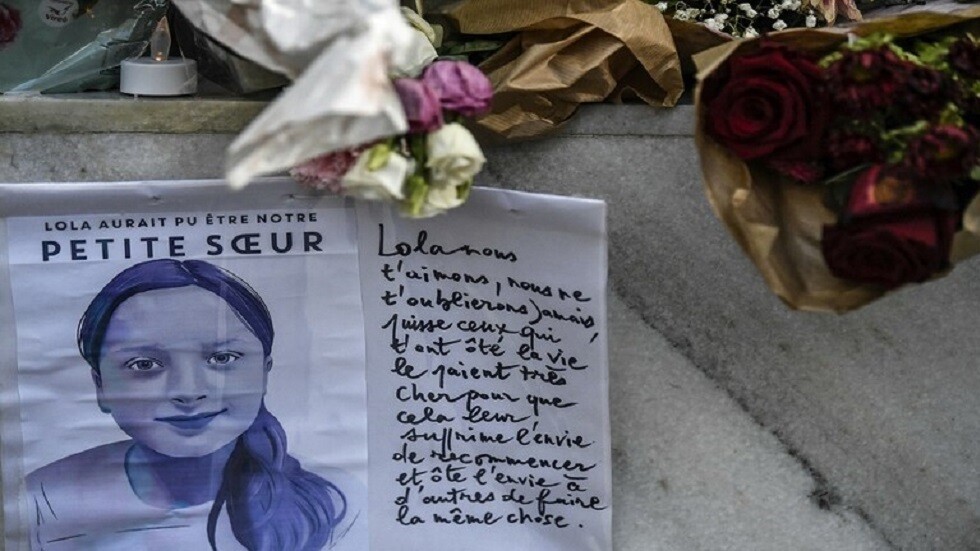 LOLA AURAIT PU ÊTRE NOTRE
PETITE SŒUR
Lola nous
t'aimons, nous ne
t'oublierons jamais,
puisse ceux qui
t'ont ôté la vie
le paient très
cher pour que
cela leur
supprime l'envie
de recommencer
et ôte l'envie à
d'autres de faire
la même chose.